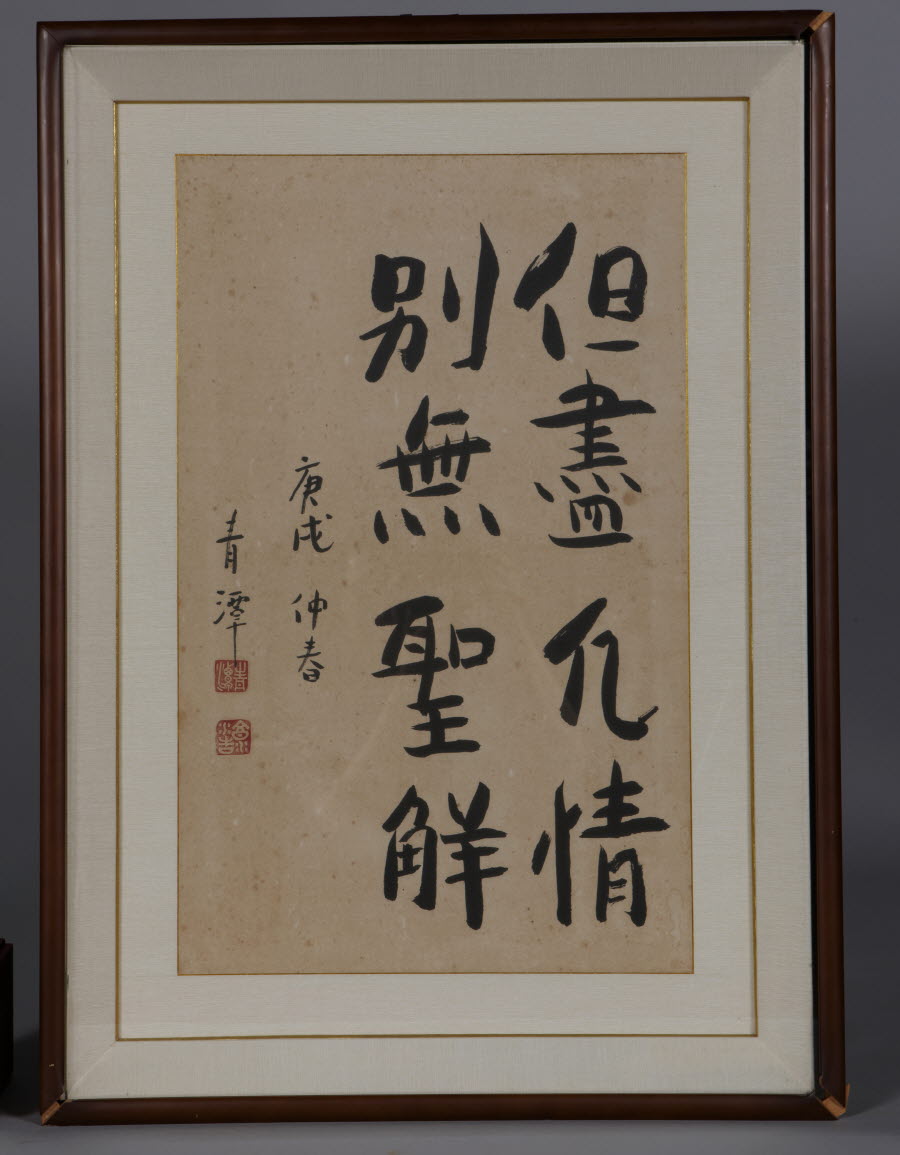 但盡凡情
別無聖解
庚戌 仲春
青潭